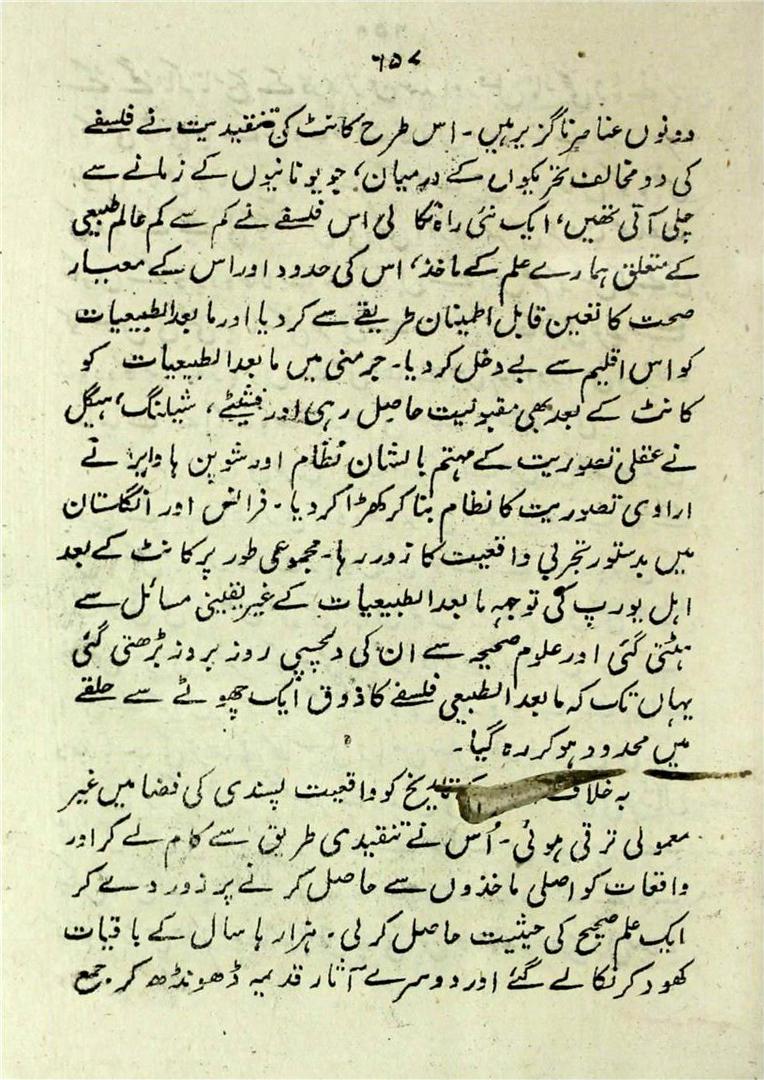 ۶۵۷
دونوں عناصر ناگزیر ہیں۔ اس طرح کانٹ کی تنقیدیت نے فلسفے
کی دو مخالف تحریکوں کے درمیان، جو یونانیوں کے زمانے سے
چلی آتی تھیں، ایک نئی راہ نکا لی اس فلسفے نے کم سے کم عالم طبیعی
کے متعلق ہمارے علم کے ماخذ، اس کی حدود اور اس کے معیار
صحت کا تعین قابل اطمینان طریقے سے کر دیا اور ما بعد الطبیعیات
کو اس اقلیم سے بے دخل کر دیا۔ جرمنی میں ما بعد الطبیعیات کو
کانٹ کے بعد بھی مقبولیت حاصل رہی اور فیشٹے، شیلنگ، ہیگل
نے عقلی تصوریت کے مہتم بالشان نظام اور شوپن ہاویر نے
ارادی تصوریت کا نظام بنا کر کھڑا کر دیا۔ فرانس اور انگلستان
میں بدستور تجربی واقعیت کا زور رہا۔ مجموعی طور پر کانٹ کے بعد
اہل یورپ کی توجہ ما بعد الطبیعیات کے غیر یقینی مسائل سے
ہٹتی گئی اور علوم صحیحہ سے ان کی دلچسپی روز بروز بڑھتی گئی
یہاں تک کہ ما بعد الطبیعی فلسفے کا ذوق ایک چھوٹے سے حلقے
میں محدود ہو کر رہ گیا۔
بہ خلاف تاریخ کو واقعیت پسندی کی فضا میں غیر
معمولی ترقی ہوئی۔ اُس نے تنقیدی طریق سے کام لے کر اور
واقعات کو اصلی ماخذوں سے حاصل کرنے پر زور دے کر
ایک علم صحیح کی حیثیت حاصل کر لی۔ ہزار ہا سال کے باقیات
کھود کر نکالے گئے اور دوسرے آثار قدیمہ ڈھونڈھ کر جمع